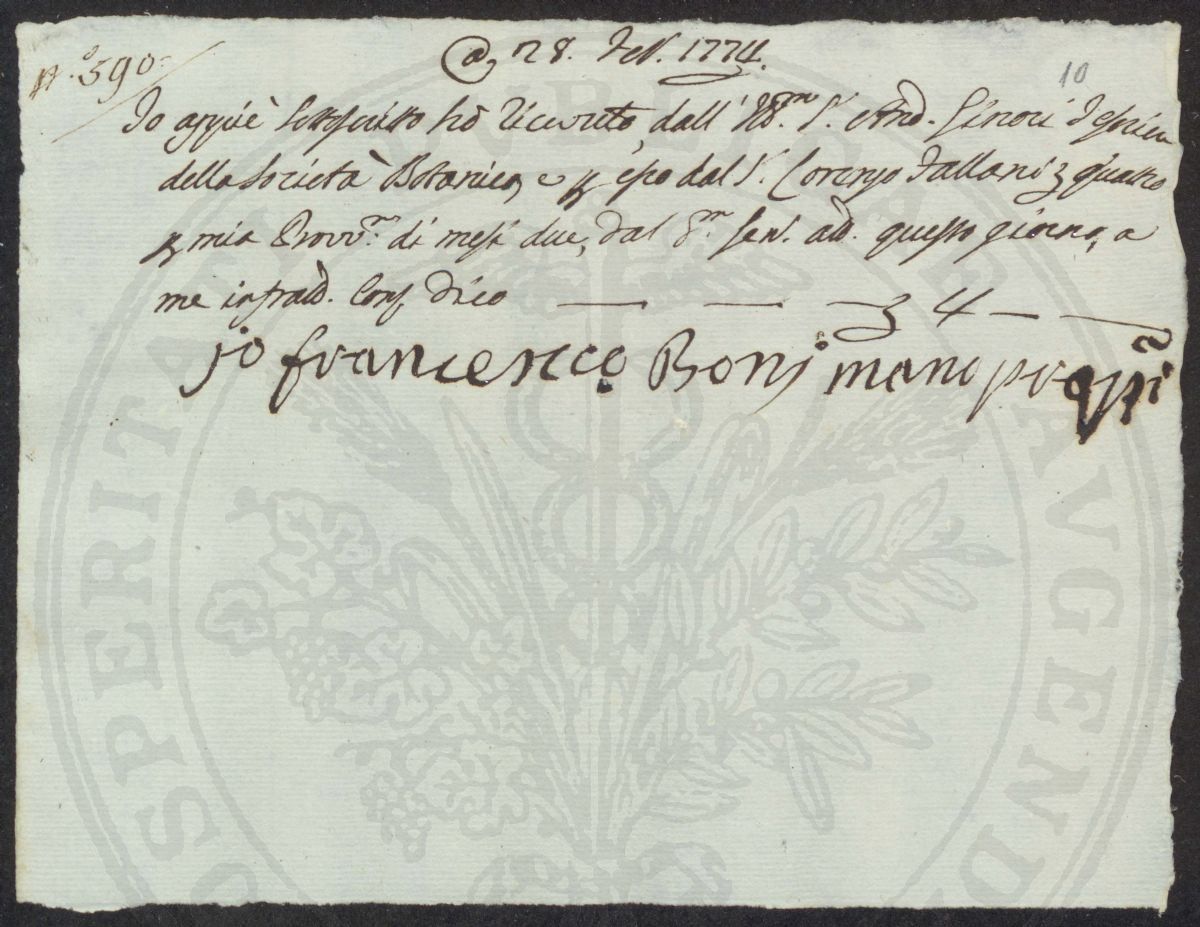 N.° 590
@ 28. Feb. 1774.
10
Io appiè sottoscritto hò riceuuto dall' Ill.mo S.r And. Ginori
della Società Botanica, e p esso dal S.r Lorenzo Fallani quattro
p mia Provv.ne di mesi due, dal p.mo Gen. ad. questo giorno, a
me infrad. Cont. dico — — 4 — —
io francesco Boni mano propria
PROSPERITATI PVBLICAE AVGENDAE